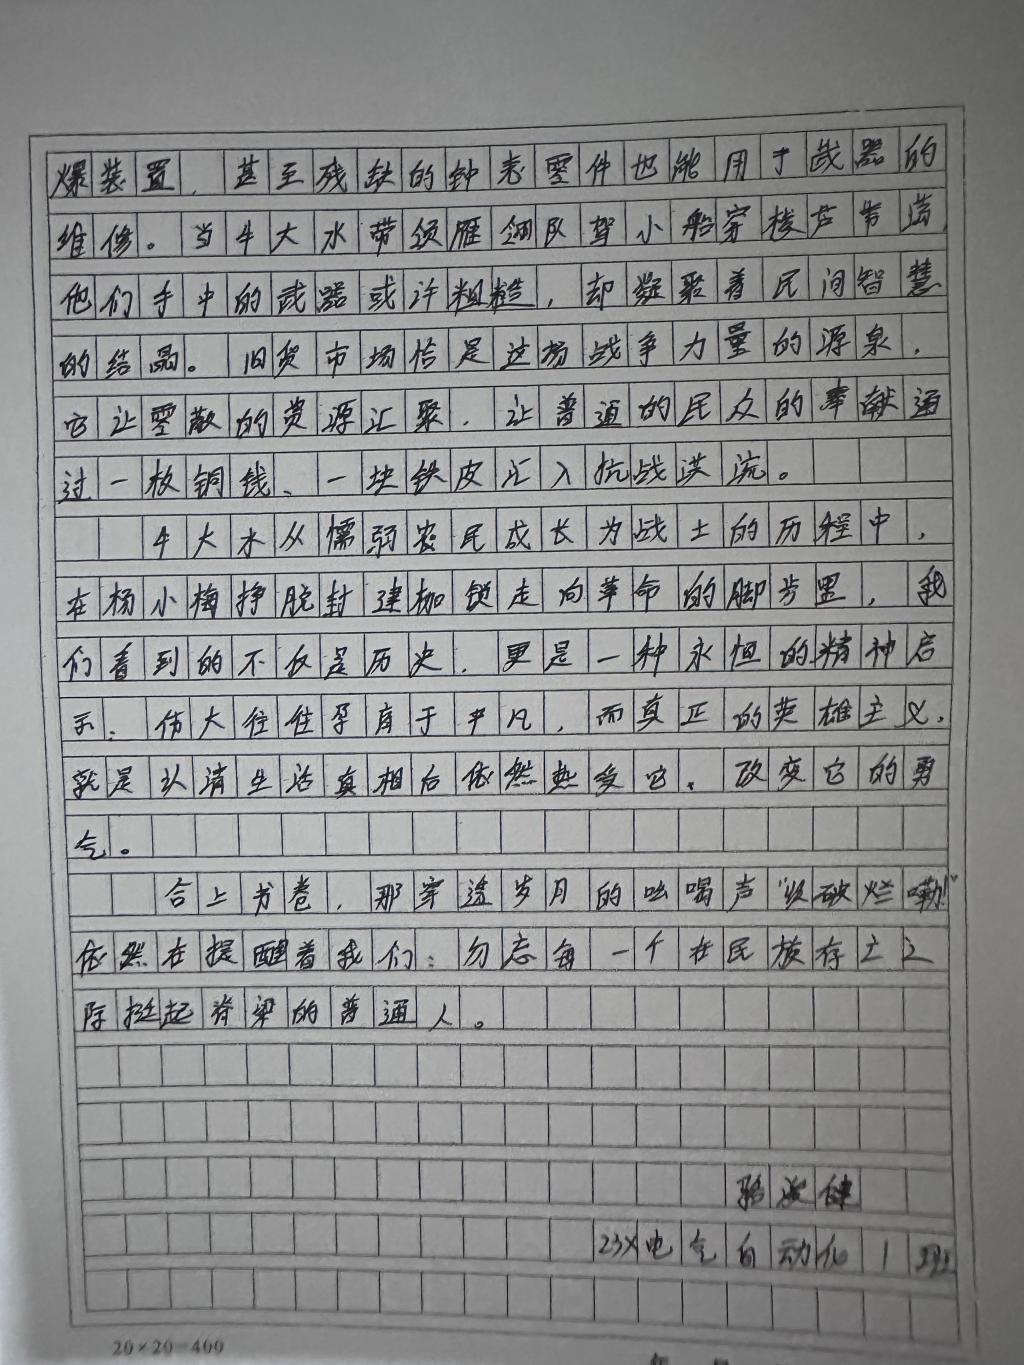 爆装置，甚至残缺的钟表零件也能用于武器的
维修。当牛大水带领雁翎队驾小船穿梭芦苇荡，
他们手中的武器或许粗糙，却凝聚着民间智慧
的结晶。旧货市场恰是这场战争力量的源泉，
它让零散的资源汇聚，让普通的民众的奉献通
过一枚铜钱、一块铁皮汇入抗战洪流。
牛大水从懦弱农民成长为战士的历程中，
在杨小梅挣脱封建枷锁走向革命的脚步里，我
们看到的不仅是历史，更是一种永恒的精神启
示：伟大往往孕育于平凡，而真正的英雄主义，
就是认清生活真相后依然热爱它、改变它的勇
气。
合上书卷，那穿透岁月的吆喝声“收破烂嘞！”
依然在提醒着我们：勿忘每一个在民族存亡之
际挺起脊梁的普通人。
健
23X电气自动化1班
20×20=400